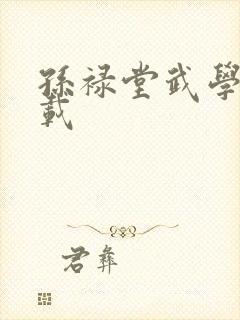 孫禄堂武學
載
君彝